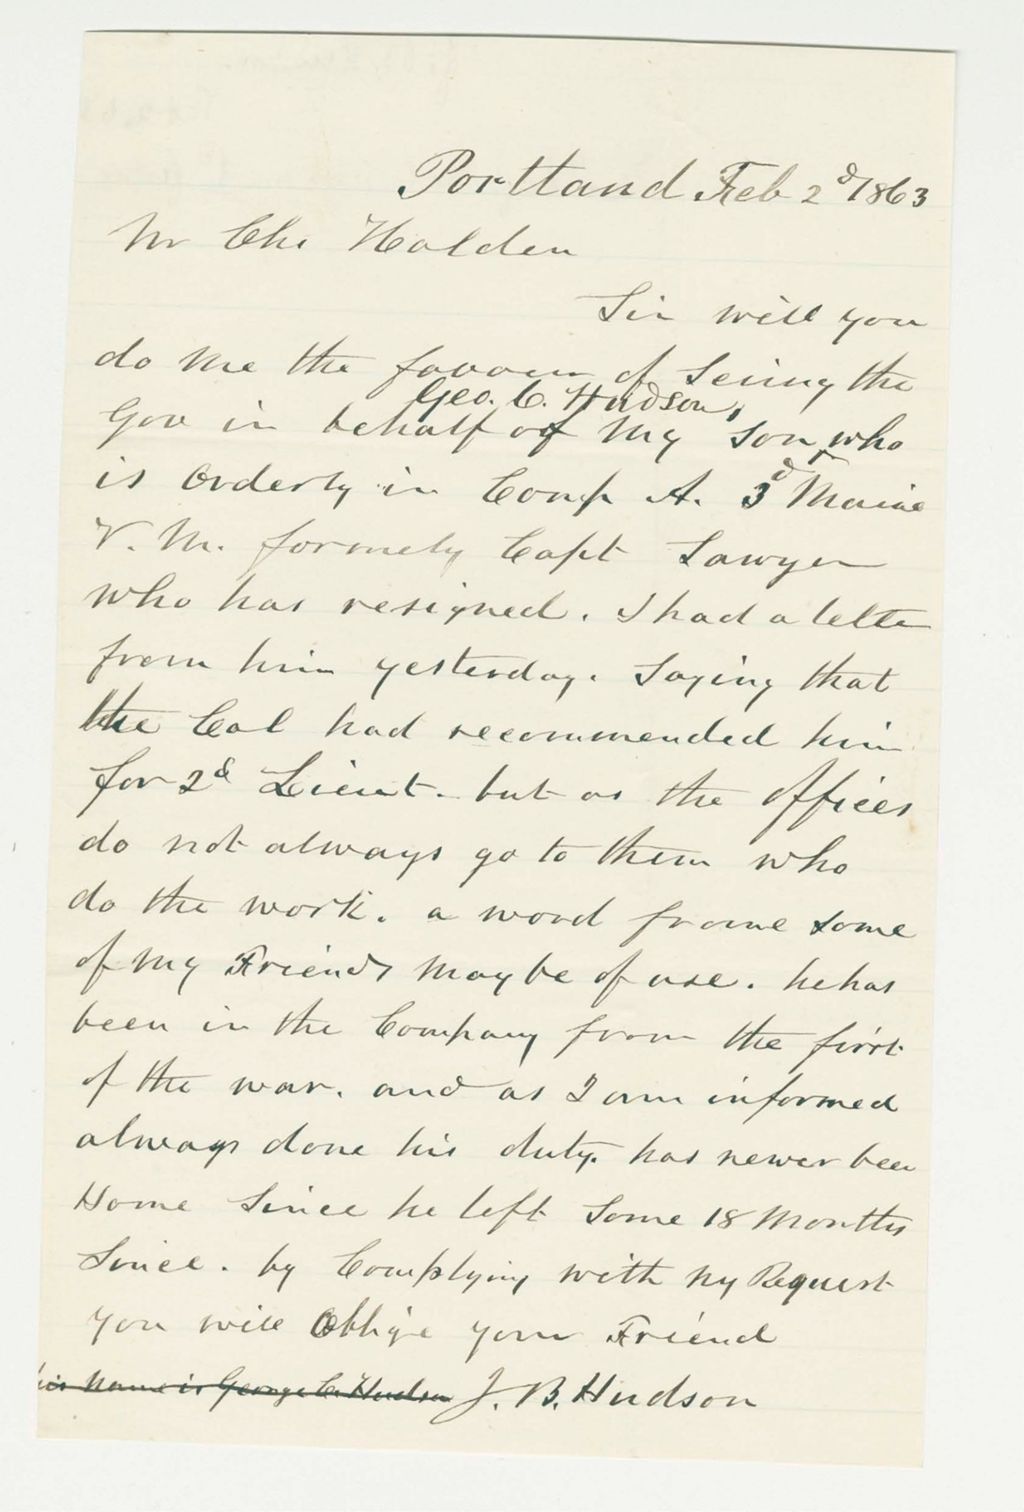 Portland Feb 2d 1863
Mr Chs Holden
Sir will you
do me the favour of seeing the
Geo. C. Hudson,
Gov in behalf of my son who
is Orderly in Comp A. 3d Maine
V. M. formely Capt Sawyer
who has resigned. I had a letter
from him yesterday. Saying that
the Col had recommended him
for 2d Lieut. but as the offices
do not always go to them who
do the work. a word frome some
of my Friends may be of use. he has
been in the Company from the first
of the war. and as I am informed
always done his duty. has never been
Home Since he left Some 18 Months
Since. by Complying with my Request
you will Oblige your Friend
his name is George C. Hudson J. B. Hudson